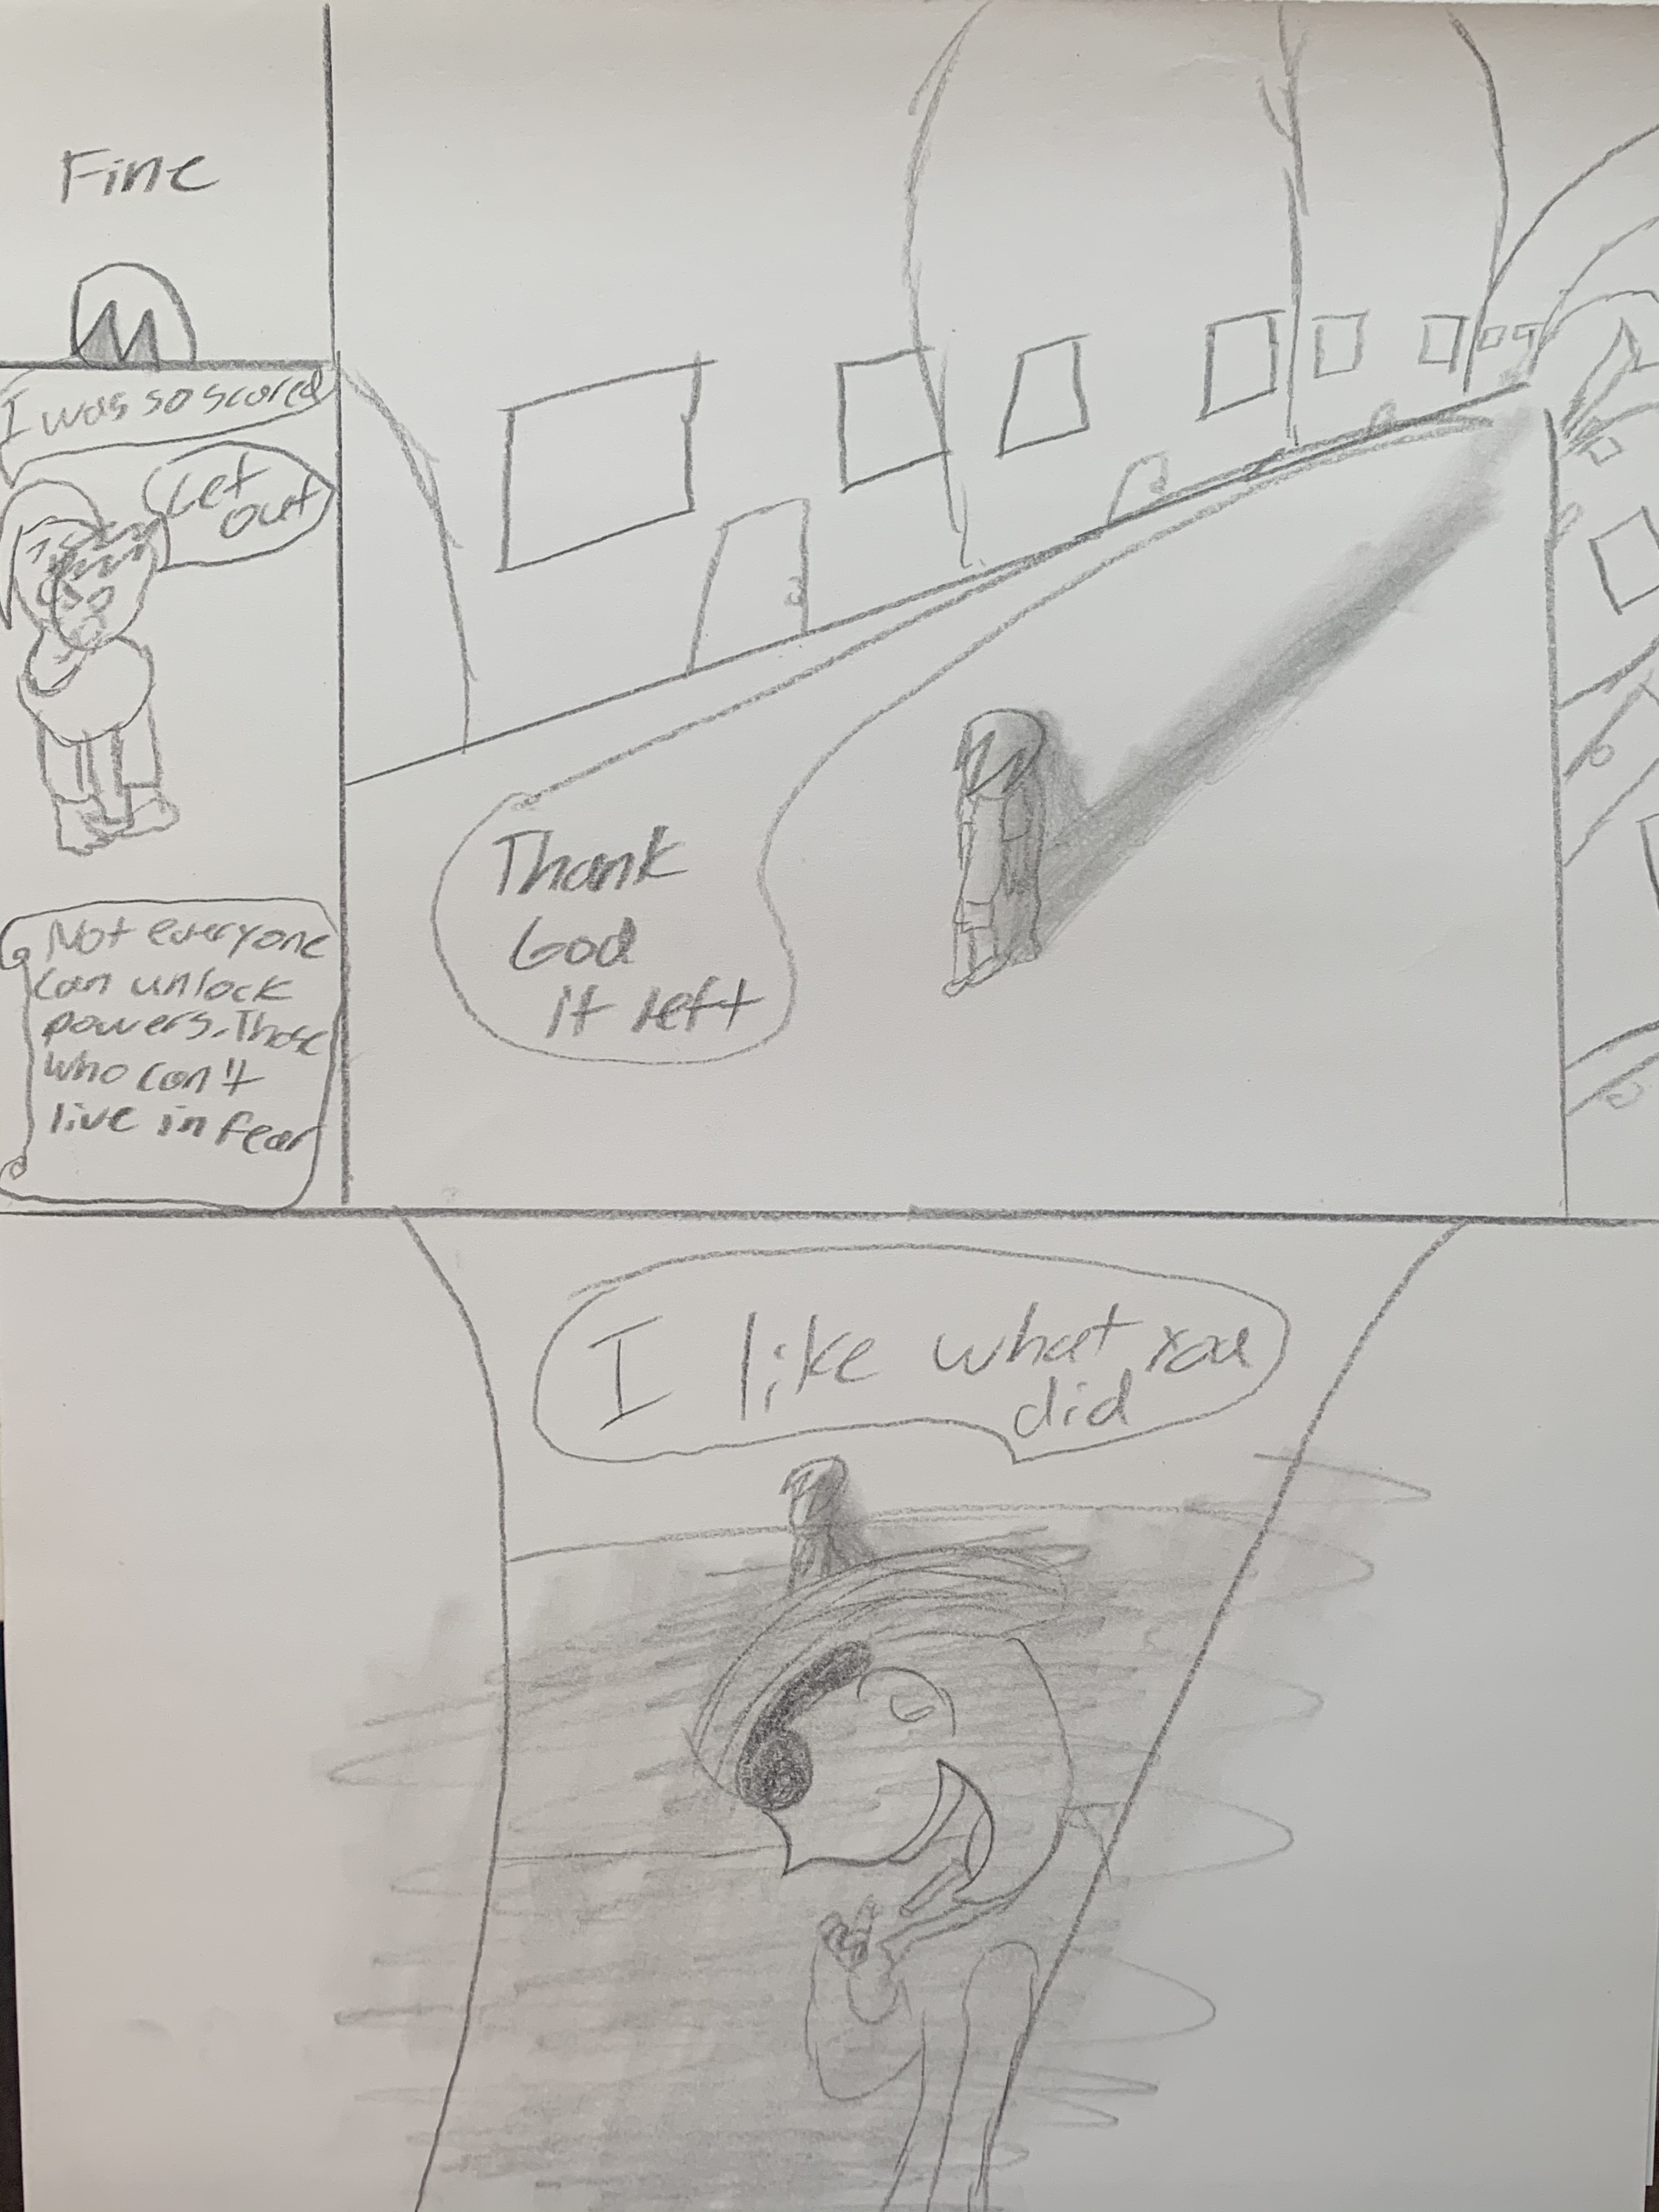 Fine
I was so scared
Get
out
Not everyone
can unlock
powers. Those
who can't
live in fear
Thank
God
it left
I like what you
did